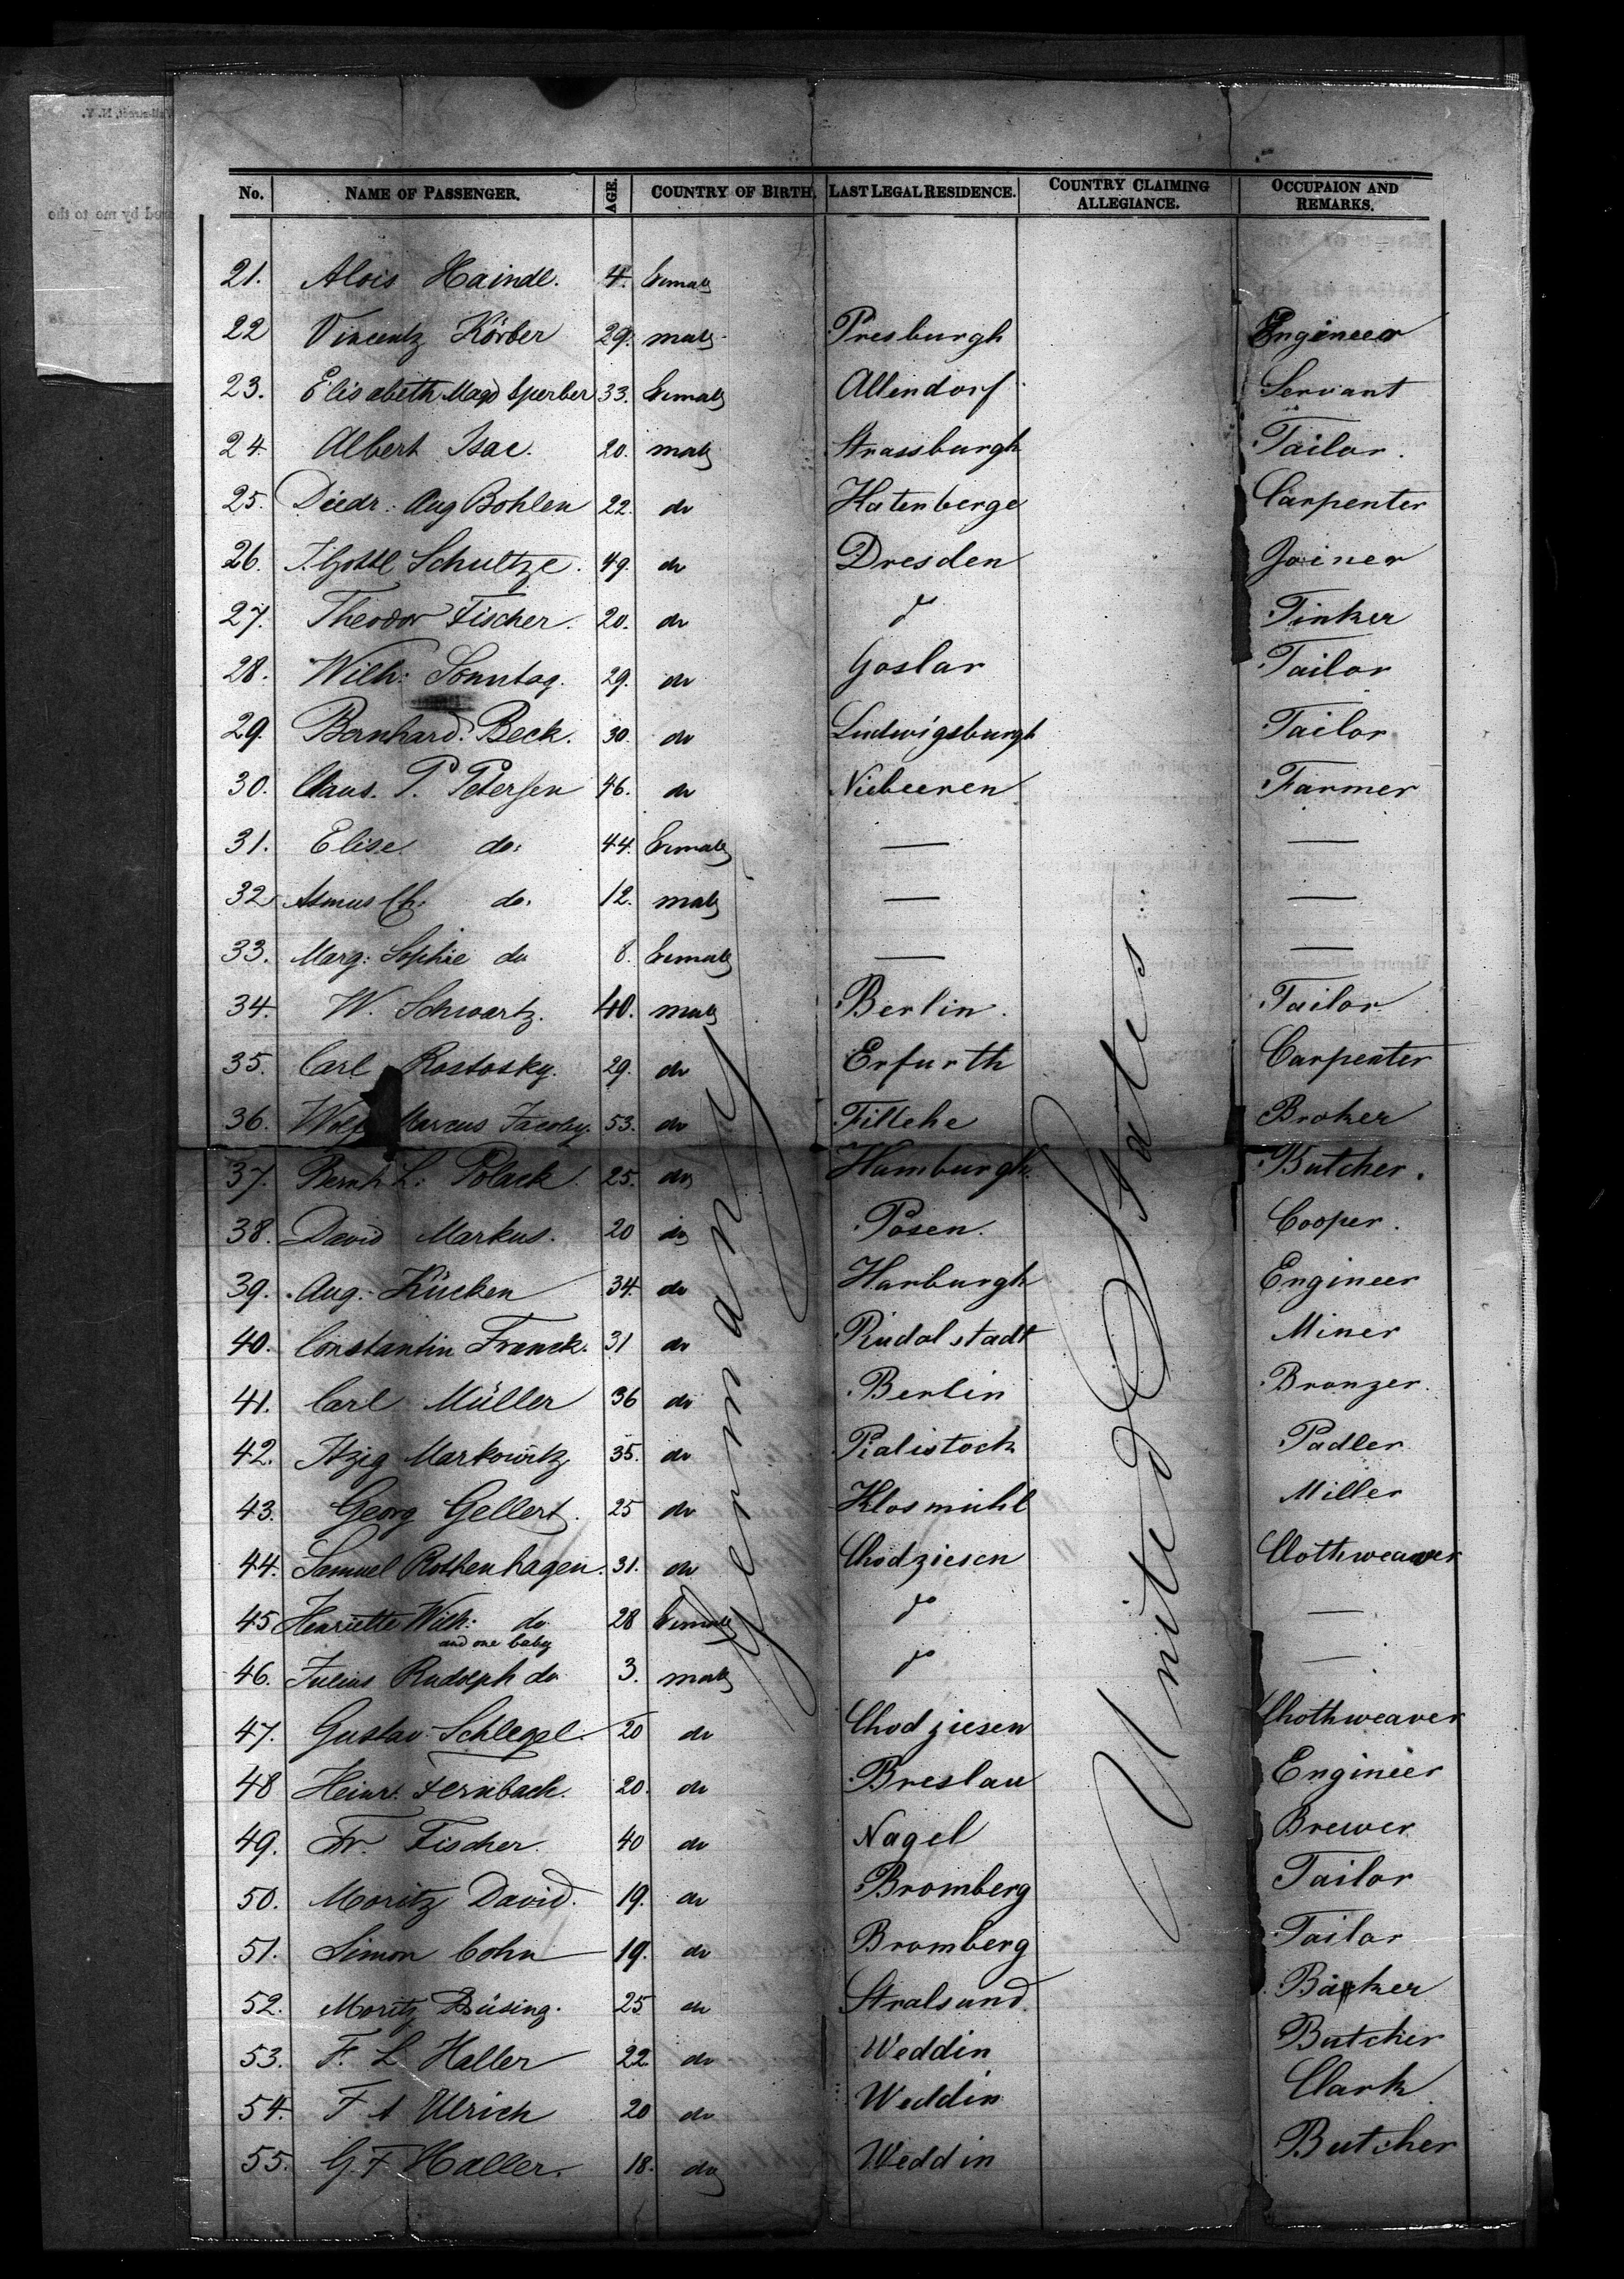 No. NAME OF PASSENGER. AGE. COUNTRY OF BIRTH. LAST LEGAL RESIDENCE. COUNTRY CLAIMING ALLEGIANCE. OCCUPAION AND REMARKS.
21. Alois Haindl. 4. female
22 Vincentz Körber 29. male Presburgh Engineer
23. Elisabeth Magd Sperber 33. female Allendorf Servant
24. Albert Isac. 20. male Strassburgh Tailor.
25. Diedr: Aug Bohlen 22. do Hatenberge Carpenter
26. J. Gottl Schultze. 49. do Dresden Joiner
27. Theodor Fischer. 20. do do Tinker
28. Wilh: Sonntag. 29. do Goslar Tailor
29. Bernhard. Beck. 30. do Ludwigsburgh Tailor
30. Claus. P. Petersen 46. do Niebeeren Farmer
31. Elise do: 44. female — —
32 Asmus Ch: do. 12. male — —
33. Marg: Sophie do 8. female — —
34. W. Schwartz. 40. male Berlin. Tailor
35. Carl Rostosky. 29. do Erfurth Carpenter
36. Wolf Marcus Jacoby. 53. do Fillehe Broker
37. Bernh L. Polack. 25. do Hamburgh Butcher.
38. David Markus. 20 do Posen. Cooper.
39. Aug. Kücken 34. do Harburgh Engineer
40. Constantin Franck. 31 do Rudolstadt Miner
41. Carl Müller 36 do Berlin Bronzer.
42. Itzig Markowitz 35. do Pialistock Padler
43. Georg Gellert. 25 do Klosmühl Miller
44. Samuel Rothenhagen. 31. do Chodziesen Clothweaver
45 Henriette Wilh: do 28 female do —
and one baby
46. Julius Rudolph do 3. male do —
47. Gustav Schlegel. 20 do Chodziesen Clothweaver
48 Heinr. Fernbach. 20. do Breslau Engineer
49. Fr. Fischer. 40 do Nagel Brewer
50. Moritz David. 19. do Bromberg Tailor
51. Simon Cohn 19. do Bromberg Tailor
52. Moritz Büsing. 25 do Stralsund. Backer
53. F. L Haller 22 do Weddin Butcher
54. F A Ulrich 20 do Weddin Clark
55. G. F Haller. 18. do Weddin Butcher
Germany
United States